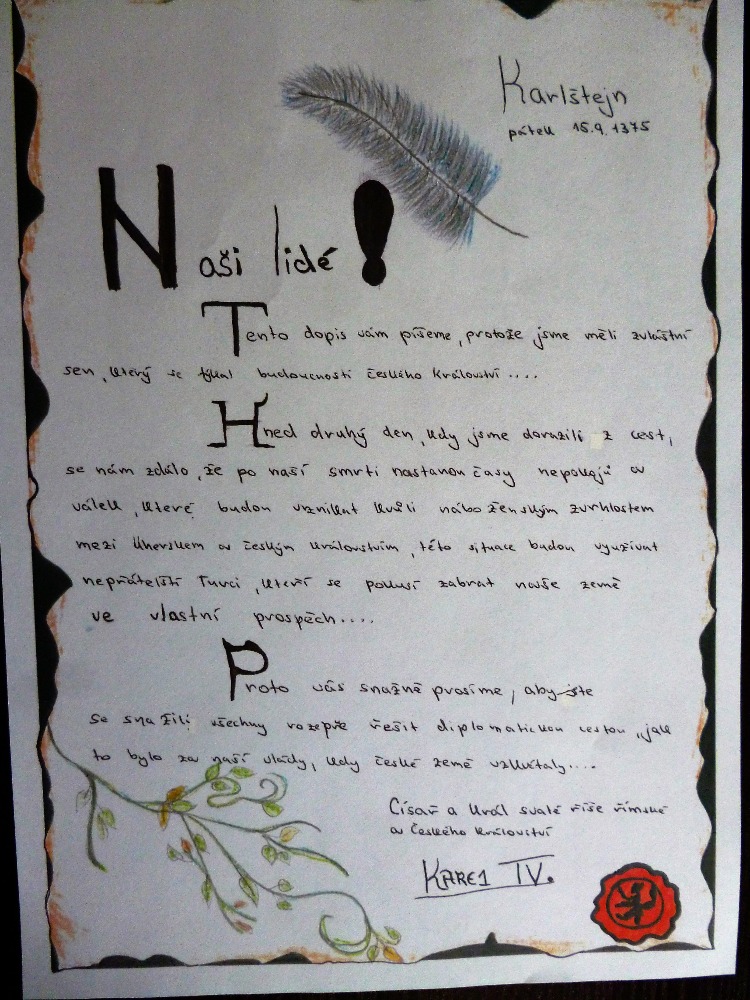 Karlštejn
pátek 15.9.1375
Naši lidé!
Tento dopis vám píšeme, protože jsme měli zvláštní
sen, který se týkal budoucnosti českého království....
Hned druhý den, kdy jsme dorazili z cest,
se nám zdálo, že po naší smrti nastanou časy nepokojů a
válek, které budou vznikat kvůli náboženským zvrhlostem
mezi Uherskem a českým královstvím, této situace budou využívat
nepřátelští Turci, kteří se pokusí zabrat naše země
ve vlastní prospěch....
Proto vás snažně prosíme, aby jste
se snažili všechny rozepře řešit diplomatickou cestou, jak
to bylo za naší vlády, kdy české země vzkvétaly....
Císař a král svaté říše římské
a českého království
KAREL IV.